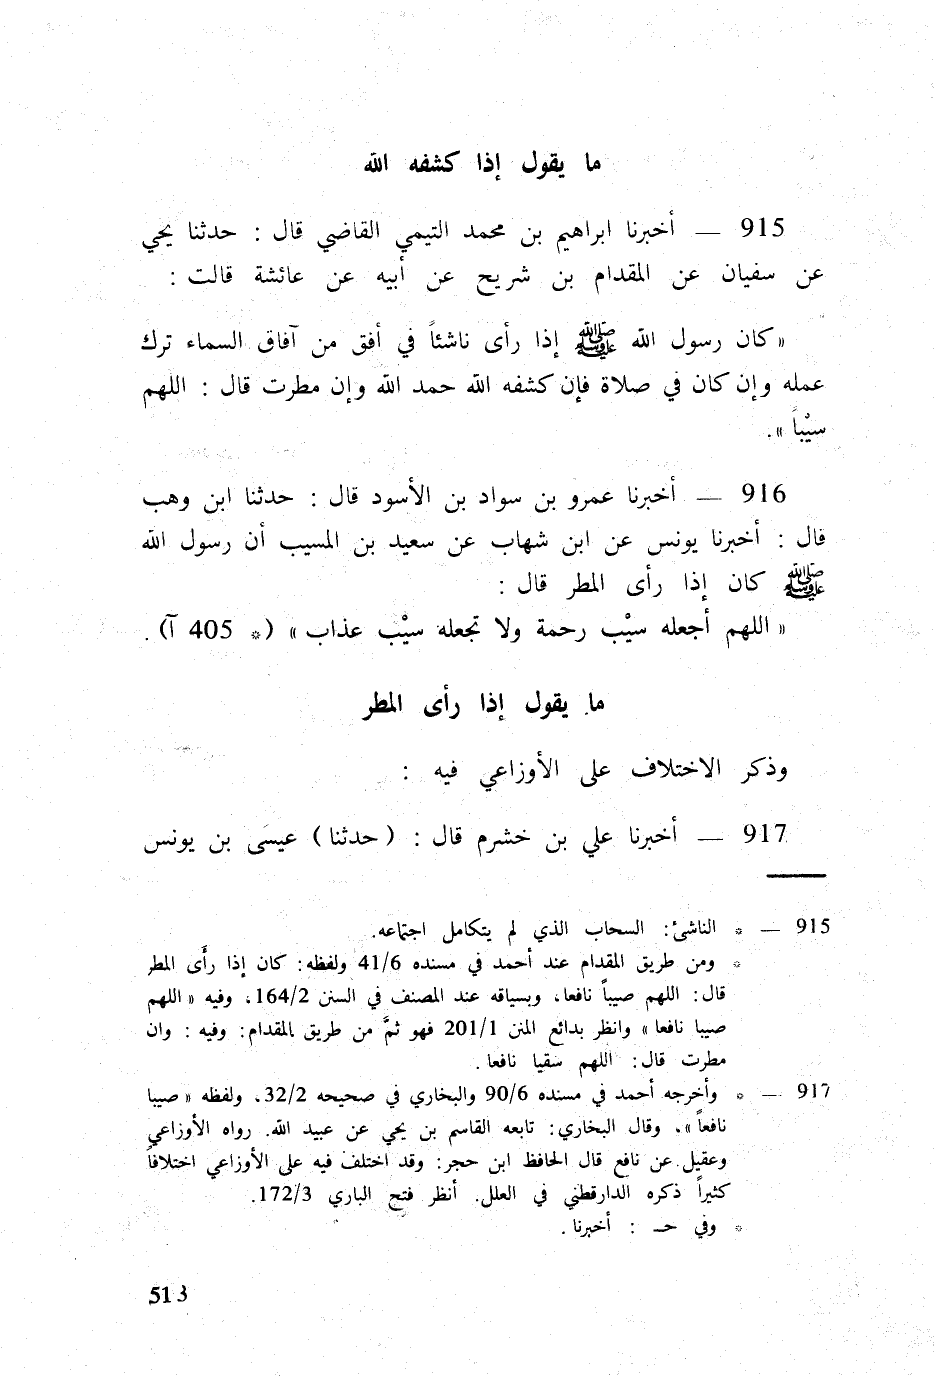 ما يقول إذا كشفه الله
915 — أخبرنا ابراهيم بن محمد التيمي القاضي قال : حدثنا يحي
عن سفيان عن المقدام بن شريح عن أبيه عن عائشة قالت :
« كان رسول الله ﷺ إذا رأى ناشئاً في أفق من آفاق السماء ترك
عمله وإن كان في صلاة فإن كشفه الله حمد الله وإن مطرت قال : اللهم
سيْباً ».
916 — أخبرنا عمرو بن سواد بن الأسود قال : حدثنا ابن وهب
قال : أخبرنا يونس عن ابن شهاب عن سعيد بن المسيب أن رسول الله
ﷺ كان إذا رأى المطر قال :
« اللهم أجعله سيْب رحمة ولا تجعله سيْب عذاب » (* 405 آ) .
ما يقول إذا رأى المطر
وذكر الاختلاف على الأوزاعي فيه :
917 — أخبرنا علي بن خشرم قال : ( حدثنا ) عيسَى بن يونس
915 — * الناشئ: السحاب الذي لم يتكامل اجتماعه.
* ومن طريق المقدام عند أحمد في مسنده 41/6 ولفظه: كان إذا رأَى المطر
قال: اللهم صيباً نافعا، وبسياقه عند المصنف في السنن 164/2، وفيه « اللهم
صيبا نافعا » وانظر بدائع المنن 201/1 فهو ثمَّ من طريق المقدام: وفيه : وان
مطرت قال: اللهم سقيا نافعا .
917 — * وأخرجه أحمد في مسنده 90/6 والبخاري في صحيحه 32/2، ولفظه « صيبا
نافعاً »، وقال البخاري: تابعه القاسم بن يحي عن عبيد الله. رواه الأوزاعي
وعقيل عن نافع قال الحافظ ابن حجر: وقد اختلف فيه على الأوزاعي اختلافاً
كثيراً ذكره الدارقطني في العلل. أنظر فتح الباري 172/3.
* وفي حـ : أخبرنا .
513